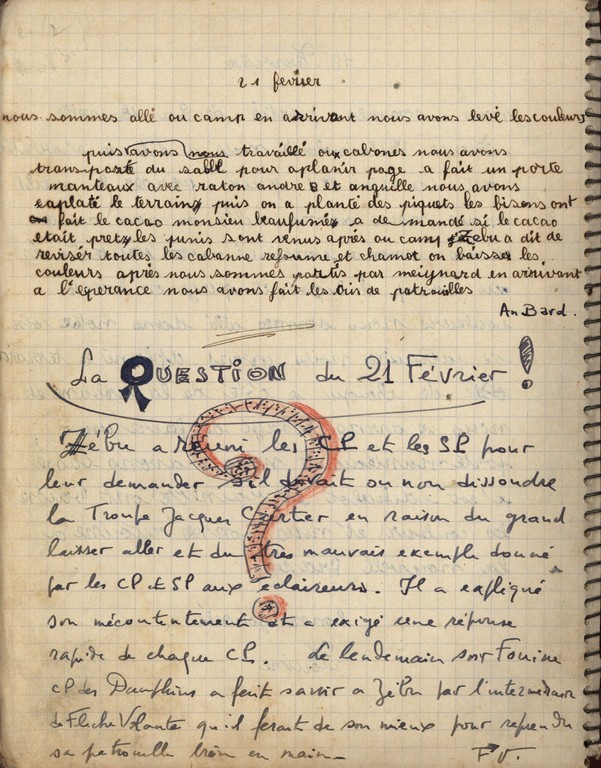 21 fevrier
nous sommes allé ou camp en arrivant nous avons levé les couleurs
puis avons nous travaillé oux cabones nous avons
transporté du sable pour aplanir page a fait un porte
manteaux avec raton andre B et anguille nous avons
aplaté le terrain puis on a planté des piquets les bisons ont
fait le cacao monsieu beaufumé a demandé si le cacao
était pret les junis sont venus après ou camp Zebu a dit de
reviser toutes les cabanne refouine et chamot on baissé les
couleurs après nous sommes partis par meignard en arrivant
a l'eperance nous avons fait les cris de patrouilles
An Bard.
La QUESTION du 21 Février !
Zébu a réuni les CP et les SP pour
leur demander s'il devait ou non dissoudre
la Troupe Jacques Cartier en raison du grand
laisser aller et du très mauvais exemple donné
par les CP et SP aux éclaireurs. Il a expliqué
son mécontentement et a exigé une réponse
rapide de chaque CP. Le lendemain soir Fouine
CP des Dauphins a fait savoir a Zébu par l'intermédiaire
de Flèche Volante qu'il ferait de son mieux pour reprendre
sa patrouille bien en main_
F V.